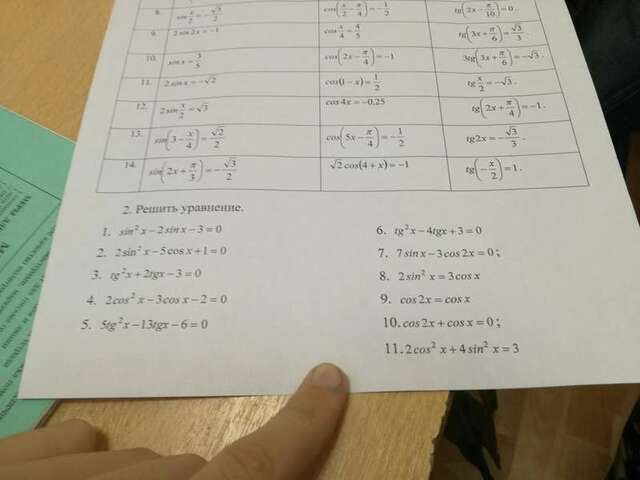 8. sin x/2 = -√3/2 cos(x/2 - π/4) = -1/2 tg(2x - π/10) = 0.
9. 2 sin 2x = -1 cos x/4 = 4/5 tg(3x + π/6) = √3/3.
10. sin x = 3/5 cos(2x - π/4) = -1 3tg(3x + π/6) = -√3.
11. 2 sin x = -√2 cos(1-x) = 1/2 tg x/2 = -√3.
12. 2 sin x/2 = √3 cos 4x = -0,25 tg(2x + π/4) = -1.
13. sin(3 - x/4) = √2/2 cos(5x - π/4) = -1/2 tg2x = -√3/3.
14. sin(2x + π/3) = -√3/2 √2 cos(4+x) = -1 tg(-x/2) = 1.
2. Решить уравнение.
1. sin² x - 2 sin x - 3 = 0
2. 2 sin² x - 5 cos x + 1 = 0
3. tg² x + 2tgx - 3 = 0
4. 2 cos² x - 3 cos x - 2 = 0
5. 5tg² x - 13tgx - 6 = 0
6. tg² x - 4tgx + 3 = 0
7. 7 sin x - 3 cos 2x = 0;
8. 2 sin² x = 3 cos x
9. cos 2x = cos x
10. cos 2x + cos x = 0;
11. 2 cos² x + 4 sin² x = 3